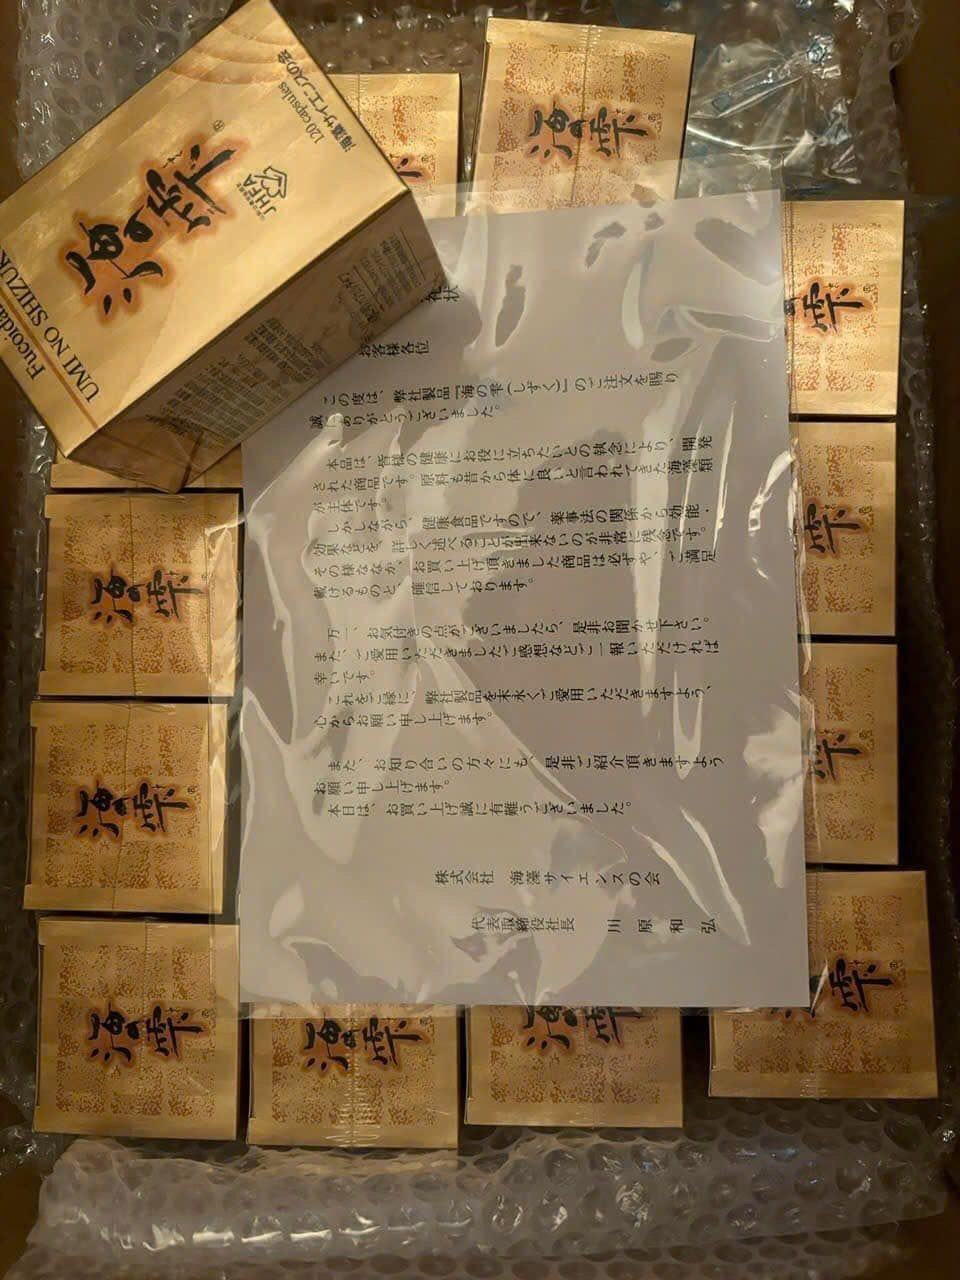 礼状
お客様各位
この度は、弊社製品『海の雫(しずく)』のご注文を賜り
誠にありがとうございました。
本品は、皆様の健康にお役に立ちたいとの執念により、開発
された商品です。原料も昔から体に良いと言われてきた海藻類
が主体です。
しかしながら、健康食品ですので、薬事法の関係から効能・
効果などを、詳しく述べることが出来ないのが非常に残念です。
その様ななか、お買い上げ頂きました商品は必ずや、ご満足
戴けるものと、確信しております。
万一、お気付きの点がございましたら、是非お聞かせ下さい。
また、ご愛用いただきましたご感想などご一報いただければ
幸いです。
これをご縁に、弊社製品を末永くご愛用いただきますよう、
心からお願い申し上げます。
また、お知り合いの方々にも、是非ご紹介頂きますよう
お願い申し上げます。
本日は、お買い上げ誠に有難うございました。
株式会社 海藻サイエンスの会
代表取締役社長 川原和弘
海藻サイエンスの会
120 capsules
JHFA
海の雫®
Fucoidan
UMI NO SHIZUK
海の雫®
海の雫
雫®
雫
雫
海の雫®
海の雫®
海の雫®
海の雫
海の雫
雫®